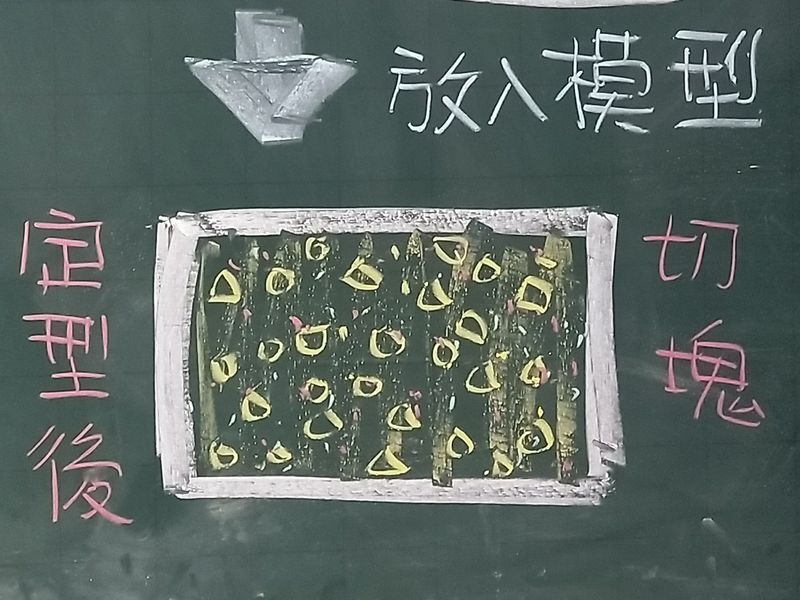 放入模型
定型後
切塊